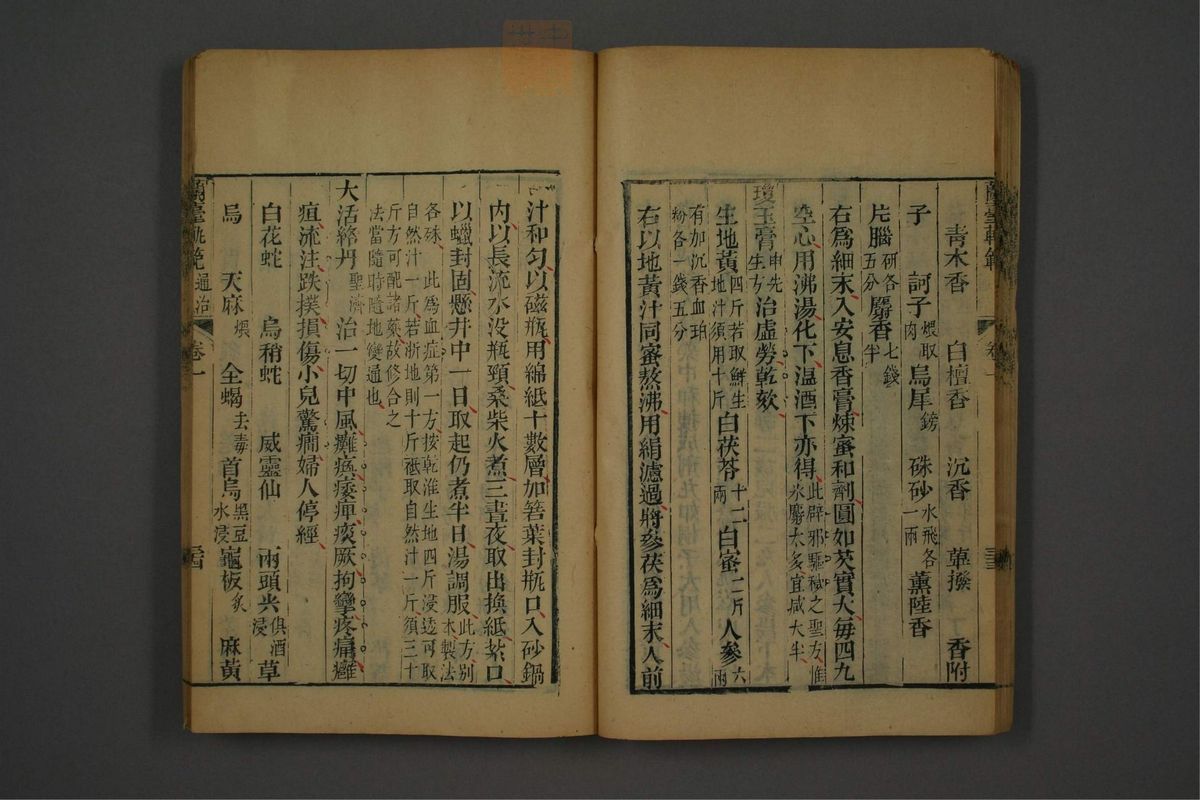 蘭臺軌範 卷一 三三
青木香 白檀香 沉香 蓽撥 香附
子 訶子煨取肉 烏犀鎊 硃砂水飛各一兩 薰陸香
片腦研各五分 麝香七錢半
右爲細末入安息香膏煉蜜和劑圓如芡實大每四九
空心用沸湯化下温酒下亦得此辟邪驅穢之聖方惟氷麝太多宜減大半
瓊玉膏申先生方 治虛勞乾欬
生地黃四斤若取鮮生地汁須用十斤 白茯苓十二兩 白蜜二斤 人參六兩
有加沉香血珀粉各一錢五分
右以地黃汁同蜜熬沸用絹濾過將參茯爲細末入前
汁和匀以磁瓶用綿紙十數層加箬葉封瓶口入砂鍋
内以長流水没瓶頸桑柴火煮三晝夜取出換紙紥口
以蠟封固懸井中一日取起仍煮半日湯調服此方別本製法
各殊 此爲血症第一方按乾淮生地四斤浸透可取
自然汁一斤若浙地則十斤砥取自然汁一斤須三十
斤方可配諸藥故修合之
法當隨時隨地變通也
大活絡丹聖濟 治一切中風癱瘓痿痺痰厥拘攣疼痛癰
疽流注跌撲損傷小兒驚癇婦人停經
白花蛇 烏稍蛇 威靈仙 兩頭尖俱酒浸 草
烏 天麻煨 全蝎去毒 首烏黑豆水浸 龜板炙 麻黃
蘭臺軌範 通治 卷一 三四